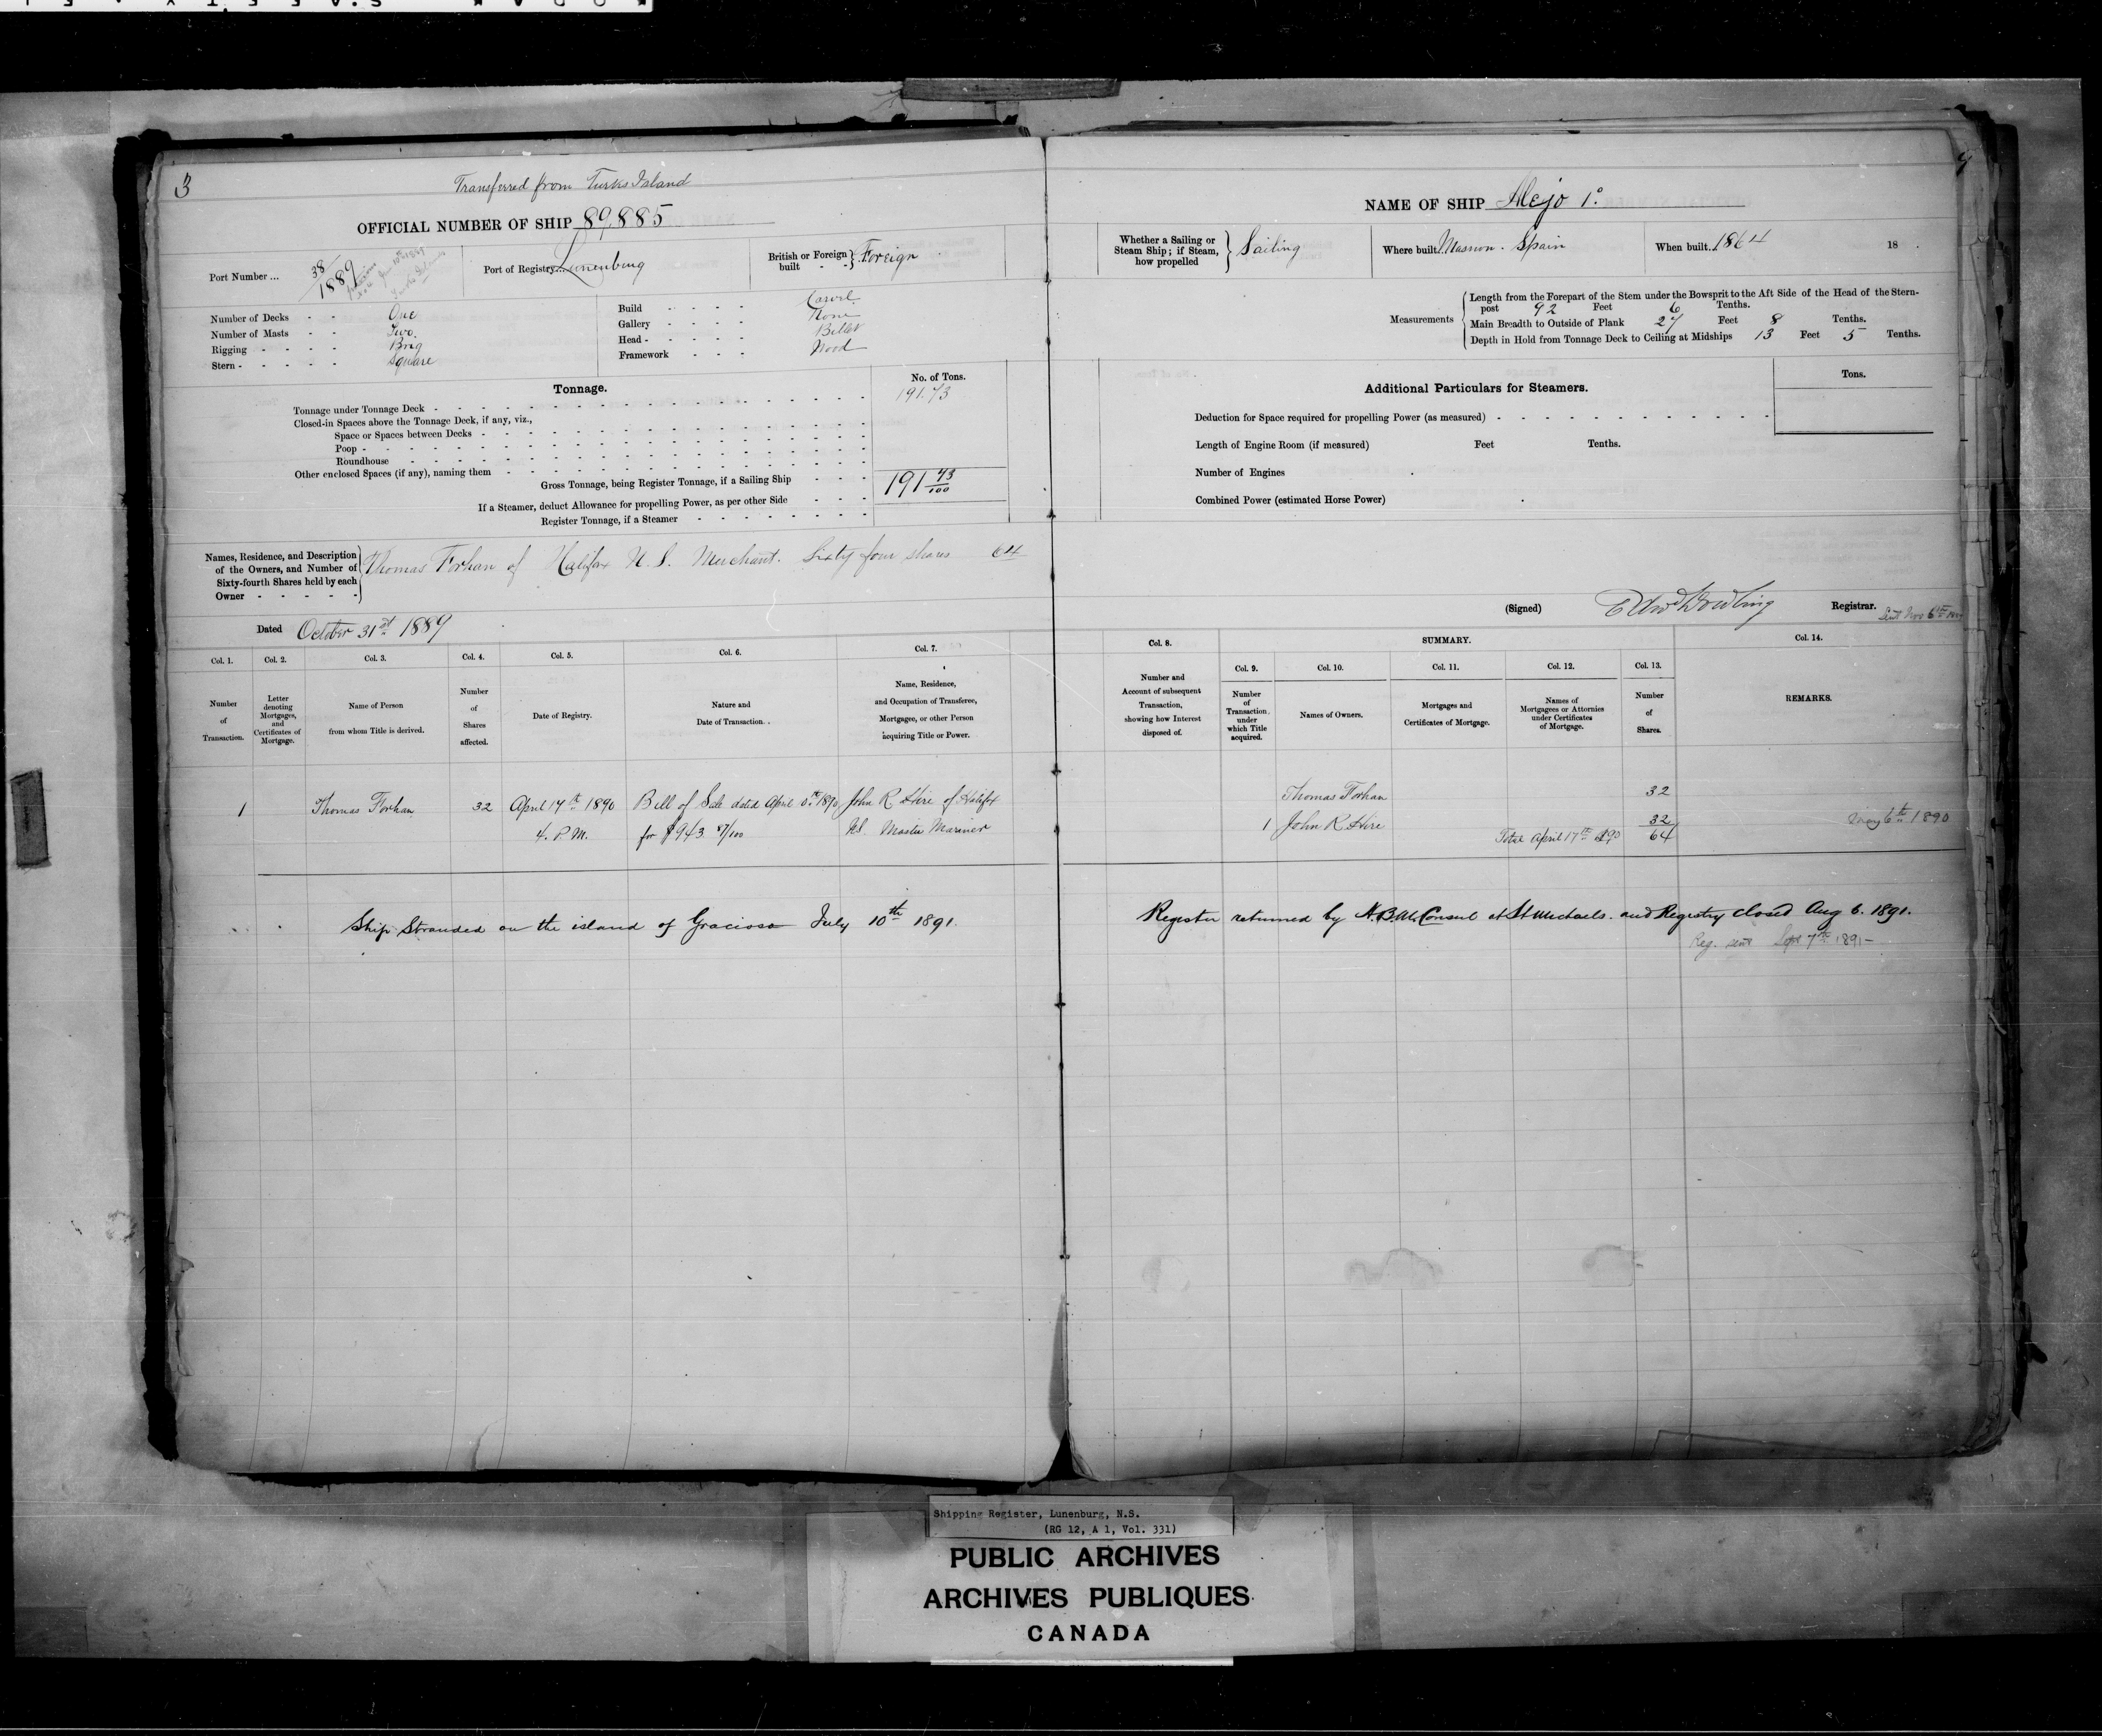 3
Transferred from Turks Island
OFFICIAL NUMBER OF SHIP 89,885
Port Number ... 38/1889
Port of Registry... Lunenburg
British or Foreign built - - } Foreign
Number of Decks - - One
Number of Masts - - Two
Rigging - - - - - Brig
Stern - - - - - Square
Build - - - - Carvel
Gallery - - - - None
Head - - - - - Billet
Framework - - - Wood
Tonnage.
No. of Tons.
Tonnage under Tonnage Deck 191.73
Closed-in Spaces above the Tonnage Deck, if any, viz.,
Space or Spaces between Decks
Poop
Roundhouse
Other enclosed Spaces (if any), naming them
Gross Tonnage, being Register Tonnage, if a Sailing Ship 191 73/100
If a Steamer, deduct Allowance for propelling Power, as per other Side
Register Tonnage, if a Steamer
Names, Residence, and Description
of the Owners, and Number of
Sixty-fourth Shares held by each
Owner
Thomas Forhan of Halifax N.S. Merchant. Sixty four shares 64
Dated October 31st 1889
Col. 1. Col. 2. Col. 3. Col. 4. Col. 5. Col. 6. Col. 7.
Number of Transaction.
Letter denoting Mortgages, and Certificates of Mortgage.
Name of Person from whom Title is derived.
Number of Shares affected.
Date of Registry.
Nature and Date of Transaction.
Name, Residence, and Occupation of Transferee, Mortgage, or other Person acquiring Title or Power.
1 Thomas Forhan 32 April 17th 1890 Bill of Sale dated April 1890 John R Hire of Halifax
4. P.M. for $943 87/100 N.S. Master Mariner
Ship Stranded on the island of Graciosa July 10th 1891.
NAME OF SHIP Alejo 1o
Whether a Sailing or Steam Ship; if Steam, how propelled } Sailing
Where built Masnon. Spain
When built 1864 18 .
Measurements
Length from the Forepart of the Stem under the Bowsprit to the Aft Side of the Head of the Stern-
post 92 Feet 6 Tenths.
Main Breadth to Outside of Plank 27 Feet 8 Tenths.
Depth in Hold from Tonnage Deck to Ceiling at Midships 13 Feet 5 Tenths.
Additional Particulars for Steamers.
Tons.
Deduction for Space required for propelling Power (as measured)
Length of Engine Room (if measured) Feet Tenths.
Number of Engines
Combined Power (estimated Horse Power)
(Signed) Edwd Dowling Registrar.
Sent Nov 6th 1889
Col. 8. SUMMARY. Col. 14.
Col. 9. Col. 10. Col. 11. Col. 12. Col. 13.
Number and Account of subsequent Transaction, showing how Interest disposed of.
Number of Transaction, under which Title acquired.
Names of Owners.
Mortgages and Certificates of Mortgage.
Names of Mortgagees or Attornies under Certificates of Mortgage.
Number of Shares.
REMARKS.
Thomas Forhan 32
1 John R Hire 32
Total April 17th 1890 64
May 6th 1890
Register returned by H.B.M. Consul at St Michaels. and Registry closed Aug 6. 1891.
Reg. sent Sept 7th 1891
Shipping Register, Lunenburg, N.S.
(RG 12, A 1, Vol. 331)
PUBLIC ARCHIVES
ARCHIVES PUBLIQUES
CANADA